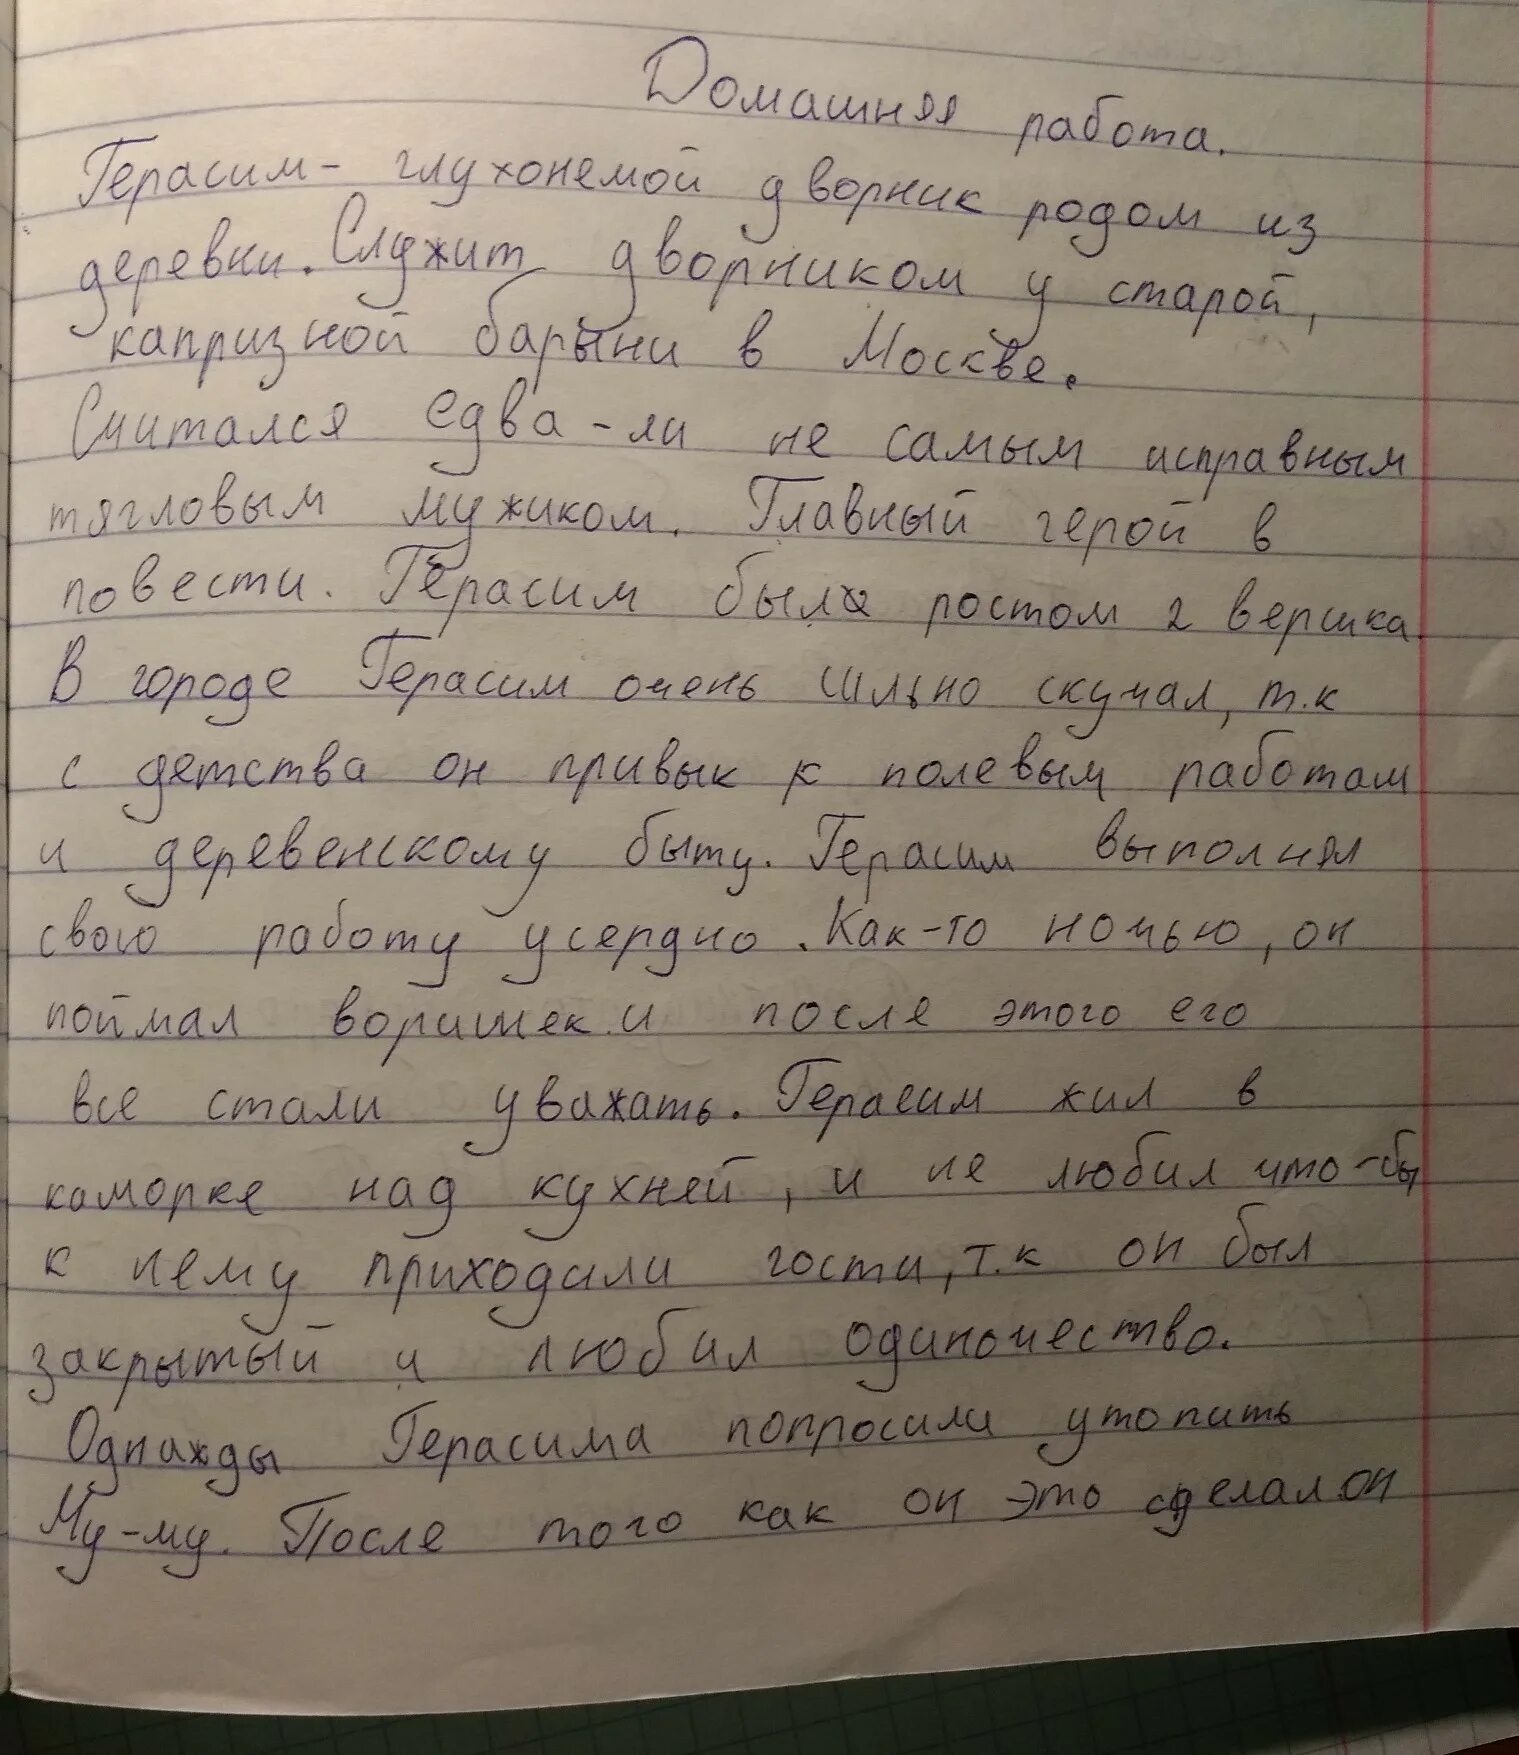 Домашняя работа.
Герасим - глухонемой дворник родом из
деревни. Служит дворником у старой,
капризной барыни в Москве.
Считался едва-ли не самым исправным
тягловым мужиком. Главный герой в
повести. Герасим был ростом 2 вершка.
В городе Герасим очень сильно скучал, т.к
с детства он привык к полевым работам
и деревенскому быту. Герасим выполнял
свою работу усердно. Как-то ночью, он
поймал воришек и после этого его
все стали уважать. Герасим жил в
каморке над кухней, и не любил что-бы
к нему приходили гости, т.к он был
закрытый и любил одиночество.
Однажды Герасима попросили утопить
Му-му. После того как он это сделал он